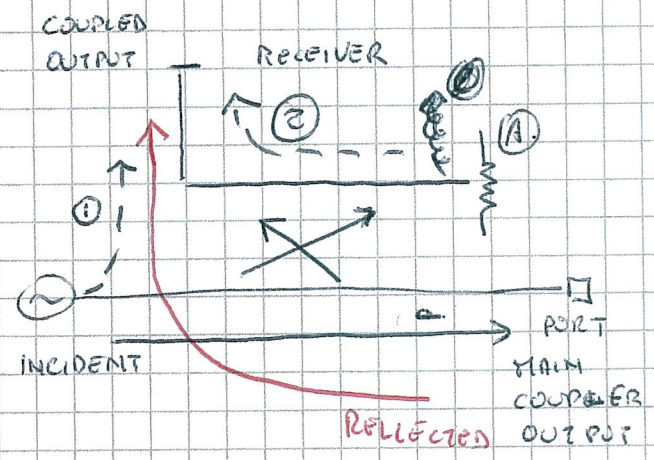 COUPLED
OUTPUT
RECEIVER
2
A.
1
P.
INCIDENT
PORT
MAIN
COUPLER
OUTPUT
REFLECTED